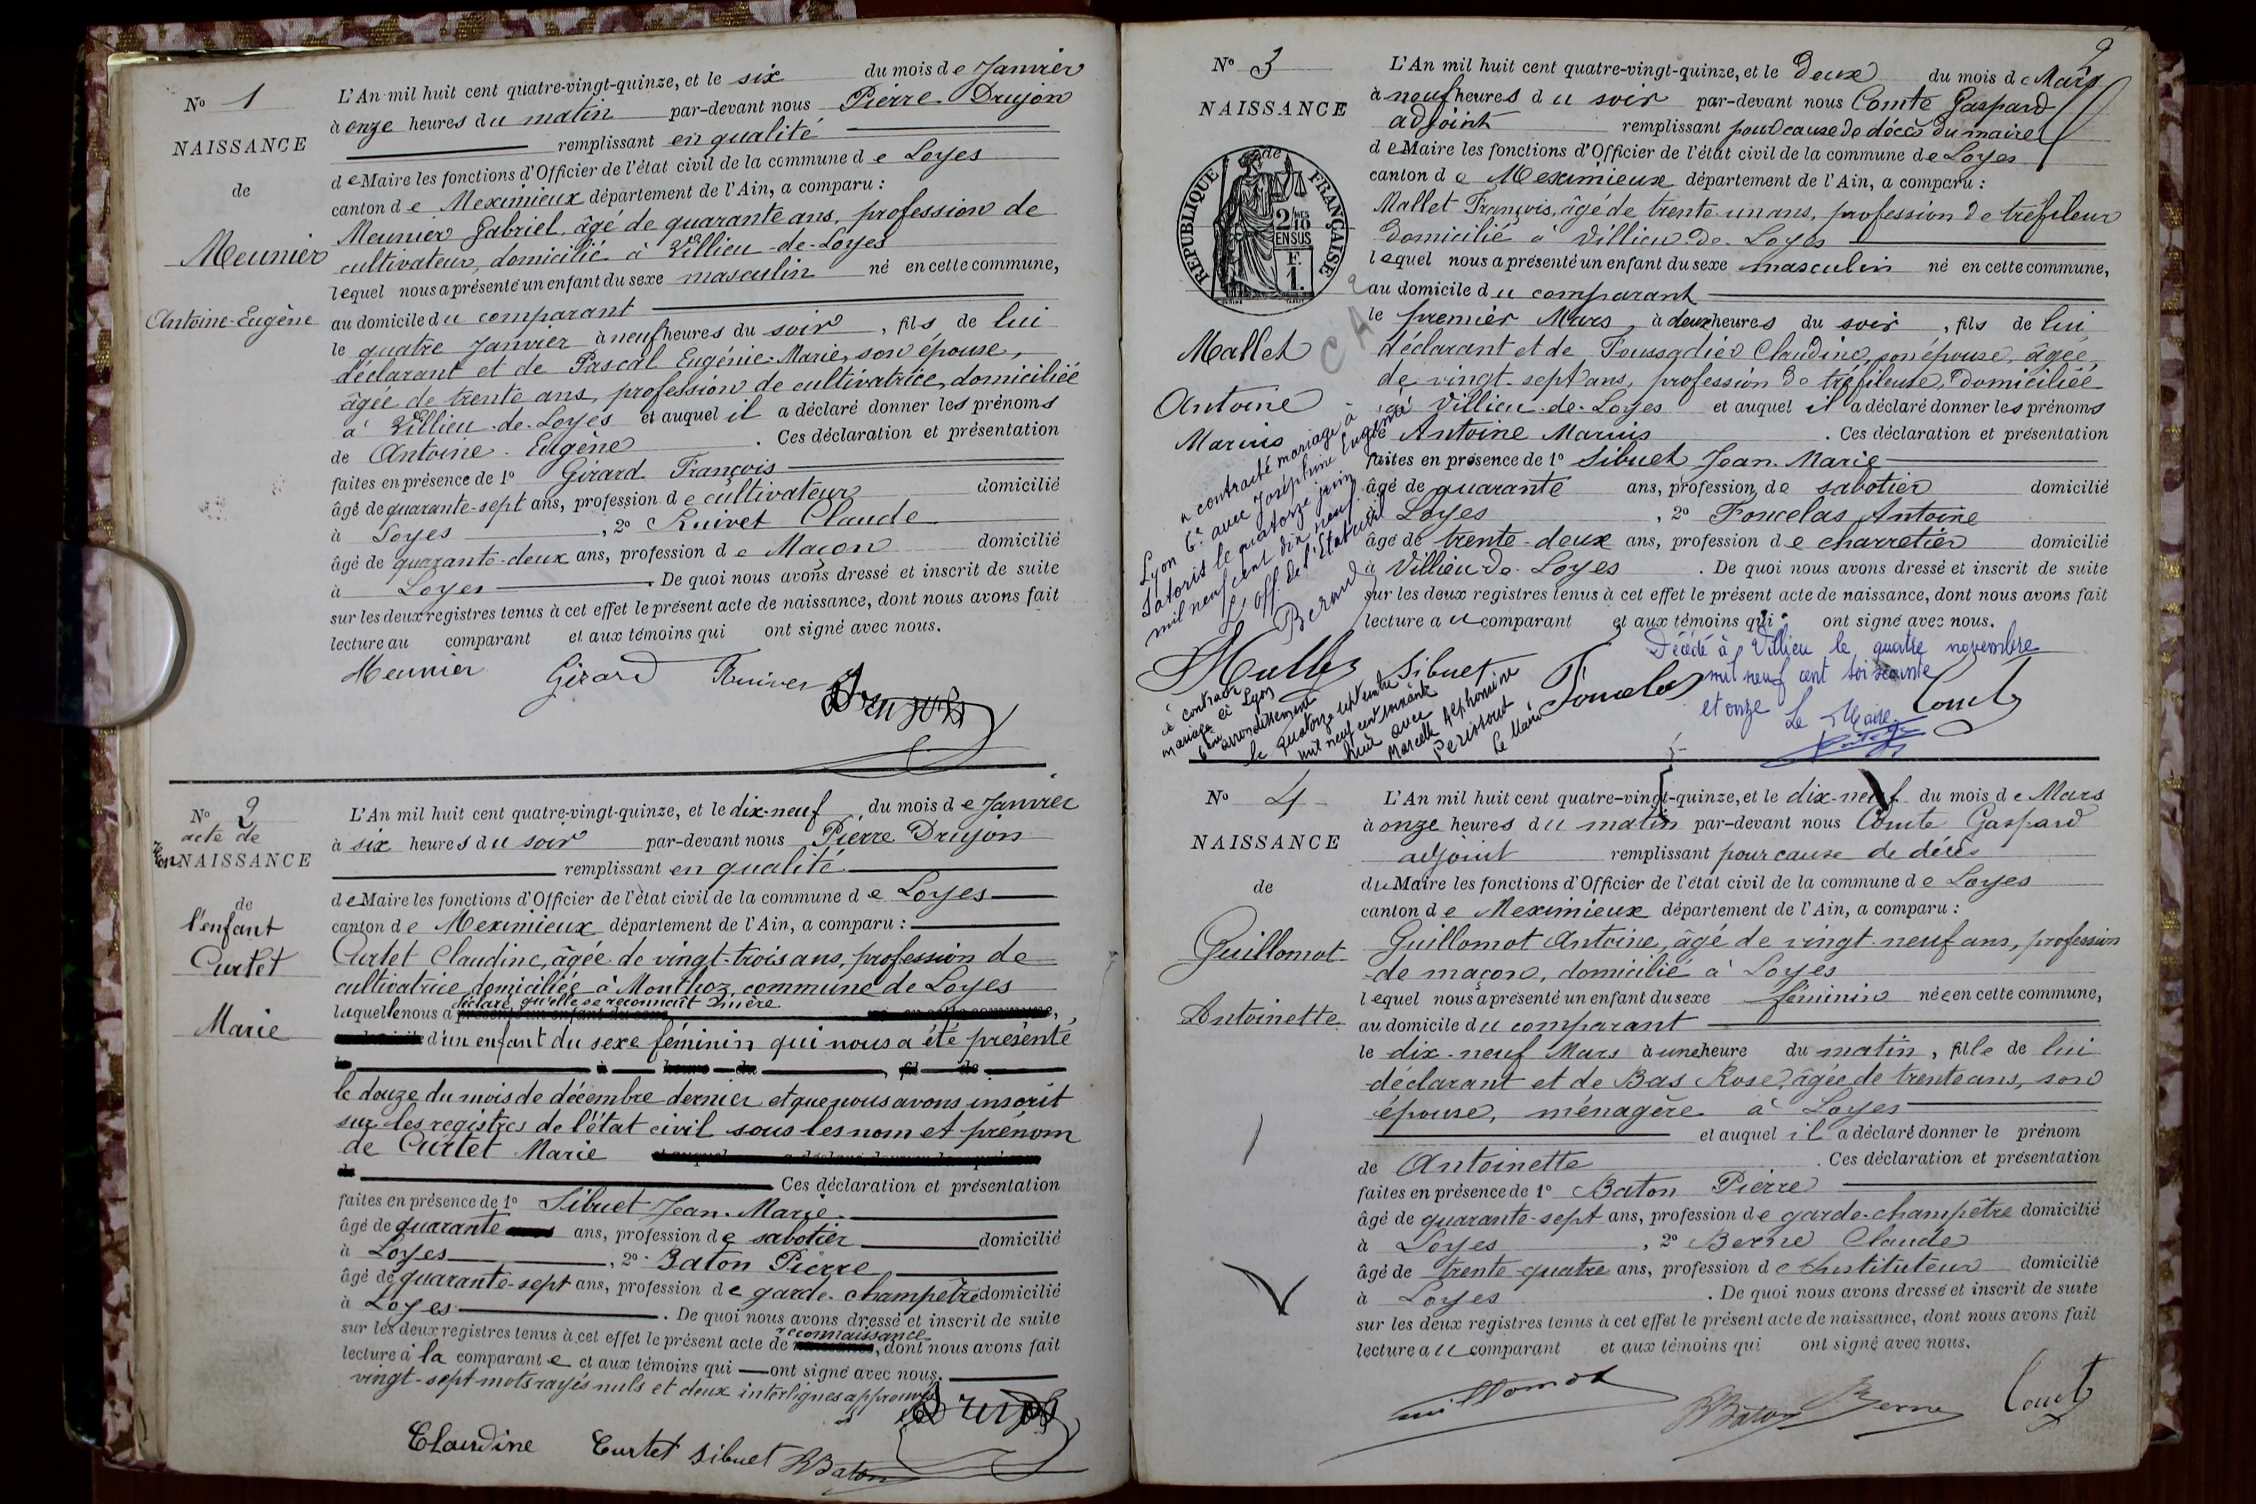 No 1
NAISSANCE
de
Meunier
Antoine-Eugène
L'An mil huit cent quatre-vingt-quinze, et le six du mois de Janvier
à onze heures du matin par-devant nous Pierre Drujon
remplissant en qualité
de Maire les fonctions d'Officier de l'état civil de la commune de Loyes
canton de Meximieux département de l'Ain, a comparu :
Meunier Gabriel, âgé de quarante ans, profession de
cultivateur, domicilié à Villieu-de-Loyes
lequel nous a présenté un enfant du sexe masculin né en cette commune,
au domicile du comparant
le quatre Janvier à neuf heures du soir, fils de lui
déclarant et de Pascal Eugénie-Marie, son épouse,
âgée de trente ans, profession de cultivatrice, domiciliée
à Villieu-de-Loyes et auquel il a déclaré donner les prénoms
de Antoine-Eugène. Ces déclaration et présentation
faites en présence de 1° Girard François
âgé de quarante-sept ans, profession de cultivateur domicilié
à Loyes, 2° Ruivet Claude
âgé de quarante-deux ans, profession de Maçon domicilié
à Loyes. De quoi nous avons dressé et inscrit de suite
sur les deux registres tenus à cet effet le présent acte de naissance, dont nous avons fait
lecture au comparant et aux témoins qui ont signé avec nous.
Meunier Girard Ruivet Drujon
No 2
acte de
NAISSANCE
de
l'enfant
Curtet
Marie
L'An mil huit cent quatre-vingt-quinze, et le dix-neuf du mois de Janvier
à six heures du soir par-devant nous Pierre Drujon
remplissant en qualité
de Maire les fonctions d'Officier de l'état civil de la commune de Loyes
canton de Meximieux département de l'Ain, a comparu :
Curtet Claudine, âgée de vingt-trois ans, profession de
cultivatrice, domiciliée à Monthoz, commune de Loyes
déclaré qu'elle se reconnaît mère
laquelle nous a présenté un enfant du sexe né en cette commune,
d'un enfant du sexe féminin qui nous a été présenté
le à heure du, fil de
le douze du mois de décembre dernier et que nous avons inscrit
sur les registres de l'état civil sous les nom et prénom
de Curtet Marie et auquel a déclaré donner le prénom
de Ces déclaration et présentation
faites en présence de 1° Sibuet Jean-Marie
âgé de quarante ans, profession de sabotier domicilié
à Loyes, 2° Baton Pierre
âgé de quarante-sept ans, profession de garde-champêtre domicilié
à Loyes. De quoi nous avons dressé et inscrit de suite
reconnaissance
sur les deux registres tenus à cet effet le présent acte de naissance, dont nous avons fait
lecture à la comparante et aux témoins qui ont signé avec nous.
vingt-sept mots rayés nuls et deux interlignes approuvés
Drujon
Claudine Curtet Sibuet Baton
2
No 3
NAISSANCE
de
RÉPUBLIQUE FRANÇAISE
2/10 EN SUS
F.
1.
Mallet
Antoine
Marius
L'An mil huit cent quatre-vingt-quinze, et le deux du mois de Mars
à neuf heures du soir par-devant nous Comte Gaspard
adjoint remplissant pour cause de décès du maire
de Maire les fonctions d'Officier de l'état civil de la commune de Loyes
canton de Meximieux département de l'Ain, a comparu :
Mallet François, âgé de trente-un ans, profession de tréfileur
domicilié à Villieu-de-Loyes
lequel nous a présenté un enfant du sexe masculin né en cette commune,
au domicile du comparant
le premier Mars, à deux heures du soir, fils de lui
déclarant et de Foussadier Claudine, son épouse, âgée
de vingt-sept ans, profession de tréfileuse, domiciliée
à Villieu-de-Loyes et auquel il a déclaré donner les prénoms
de Antoine Marius. Ces déclaration et présentation
faites en présence de 1° Sibuet Jean-Marie
âgé de quarante ans, profession de sabotier domicilié
à Loyes, 2° Foncelas Antoine
âgé de trente-deux ans, profession de charretier domicilié
à Villieu-de-Loyes. De quoi nous avons dressé et inscrit de suite
sur les deux registres tenus à cet effet le présent acte de naissance, dont nous avons fait
lecture au comparant et aux témoins qui ont signé avec nous.
a contracté mariage à
Lyon 6e avec Joséphine Eugénie
Satoris le quatorze juin
mil neuf cent dix neuf
L'off. de l'Etat civil
Bernard
a contracté
mariage à Lyon
6ème arrondissement
le quatorze septembre
mil neuf cent soixante
huit avec
Marcelle Alphonsine
Perissout
Le Maire
Décédé à Villieu le quatre novembre
mil neuf cent soixante
et onze
Le Maire
Mallet Sibuet Foncelas Comte
No 4
NAISSANCE
de
Guillomot
Antoinette
L'An mil huit cent quatre-vingt-quinze, et le dix-neuf du mois de Mars
à onze heures du matin par-devant nous Comte Gaspard
adjoint remplissant pour cause de décès
du Maire les fonctions d'Officier de l'état civil de la commune de Loyes
canton de Meximieux département de l'Ain, a comparu :
Guillomot Antoine, âgé de vingt-neuf ans, profession
de maçon, domicilié à Loyes
lequel nous a présenté un enfant du sexe féminin née en cette commune,
au domicile du comparant
le dix-neuf Mars à une heure du matin, fille de lui
déclarant et de Bas Rose, âgée de trente ans, son
épouse, ménagère à Loyes
et auquel il a déclaré donner le prénom
de Antoinette. Ces déclaration et présentation
faites en présence de 1° Baton Pierre
âgé de quarante-sept ans, profession de garde-champêtre domicilié
à Loyes, 2° Berne Claude
âgé de trente-quatre ans, profession de Instituteur domicilié
à Loyes. De quoi nous avons dressé et inscrit de suite
sur les deux registres tenus à cet effet le présent acte de naissance, dont nous avons fait
lecture au comparant et aux témoins qui ont signé avec nous.
Guillomot Baton Berne Comte